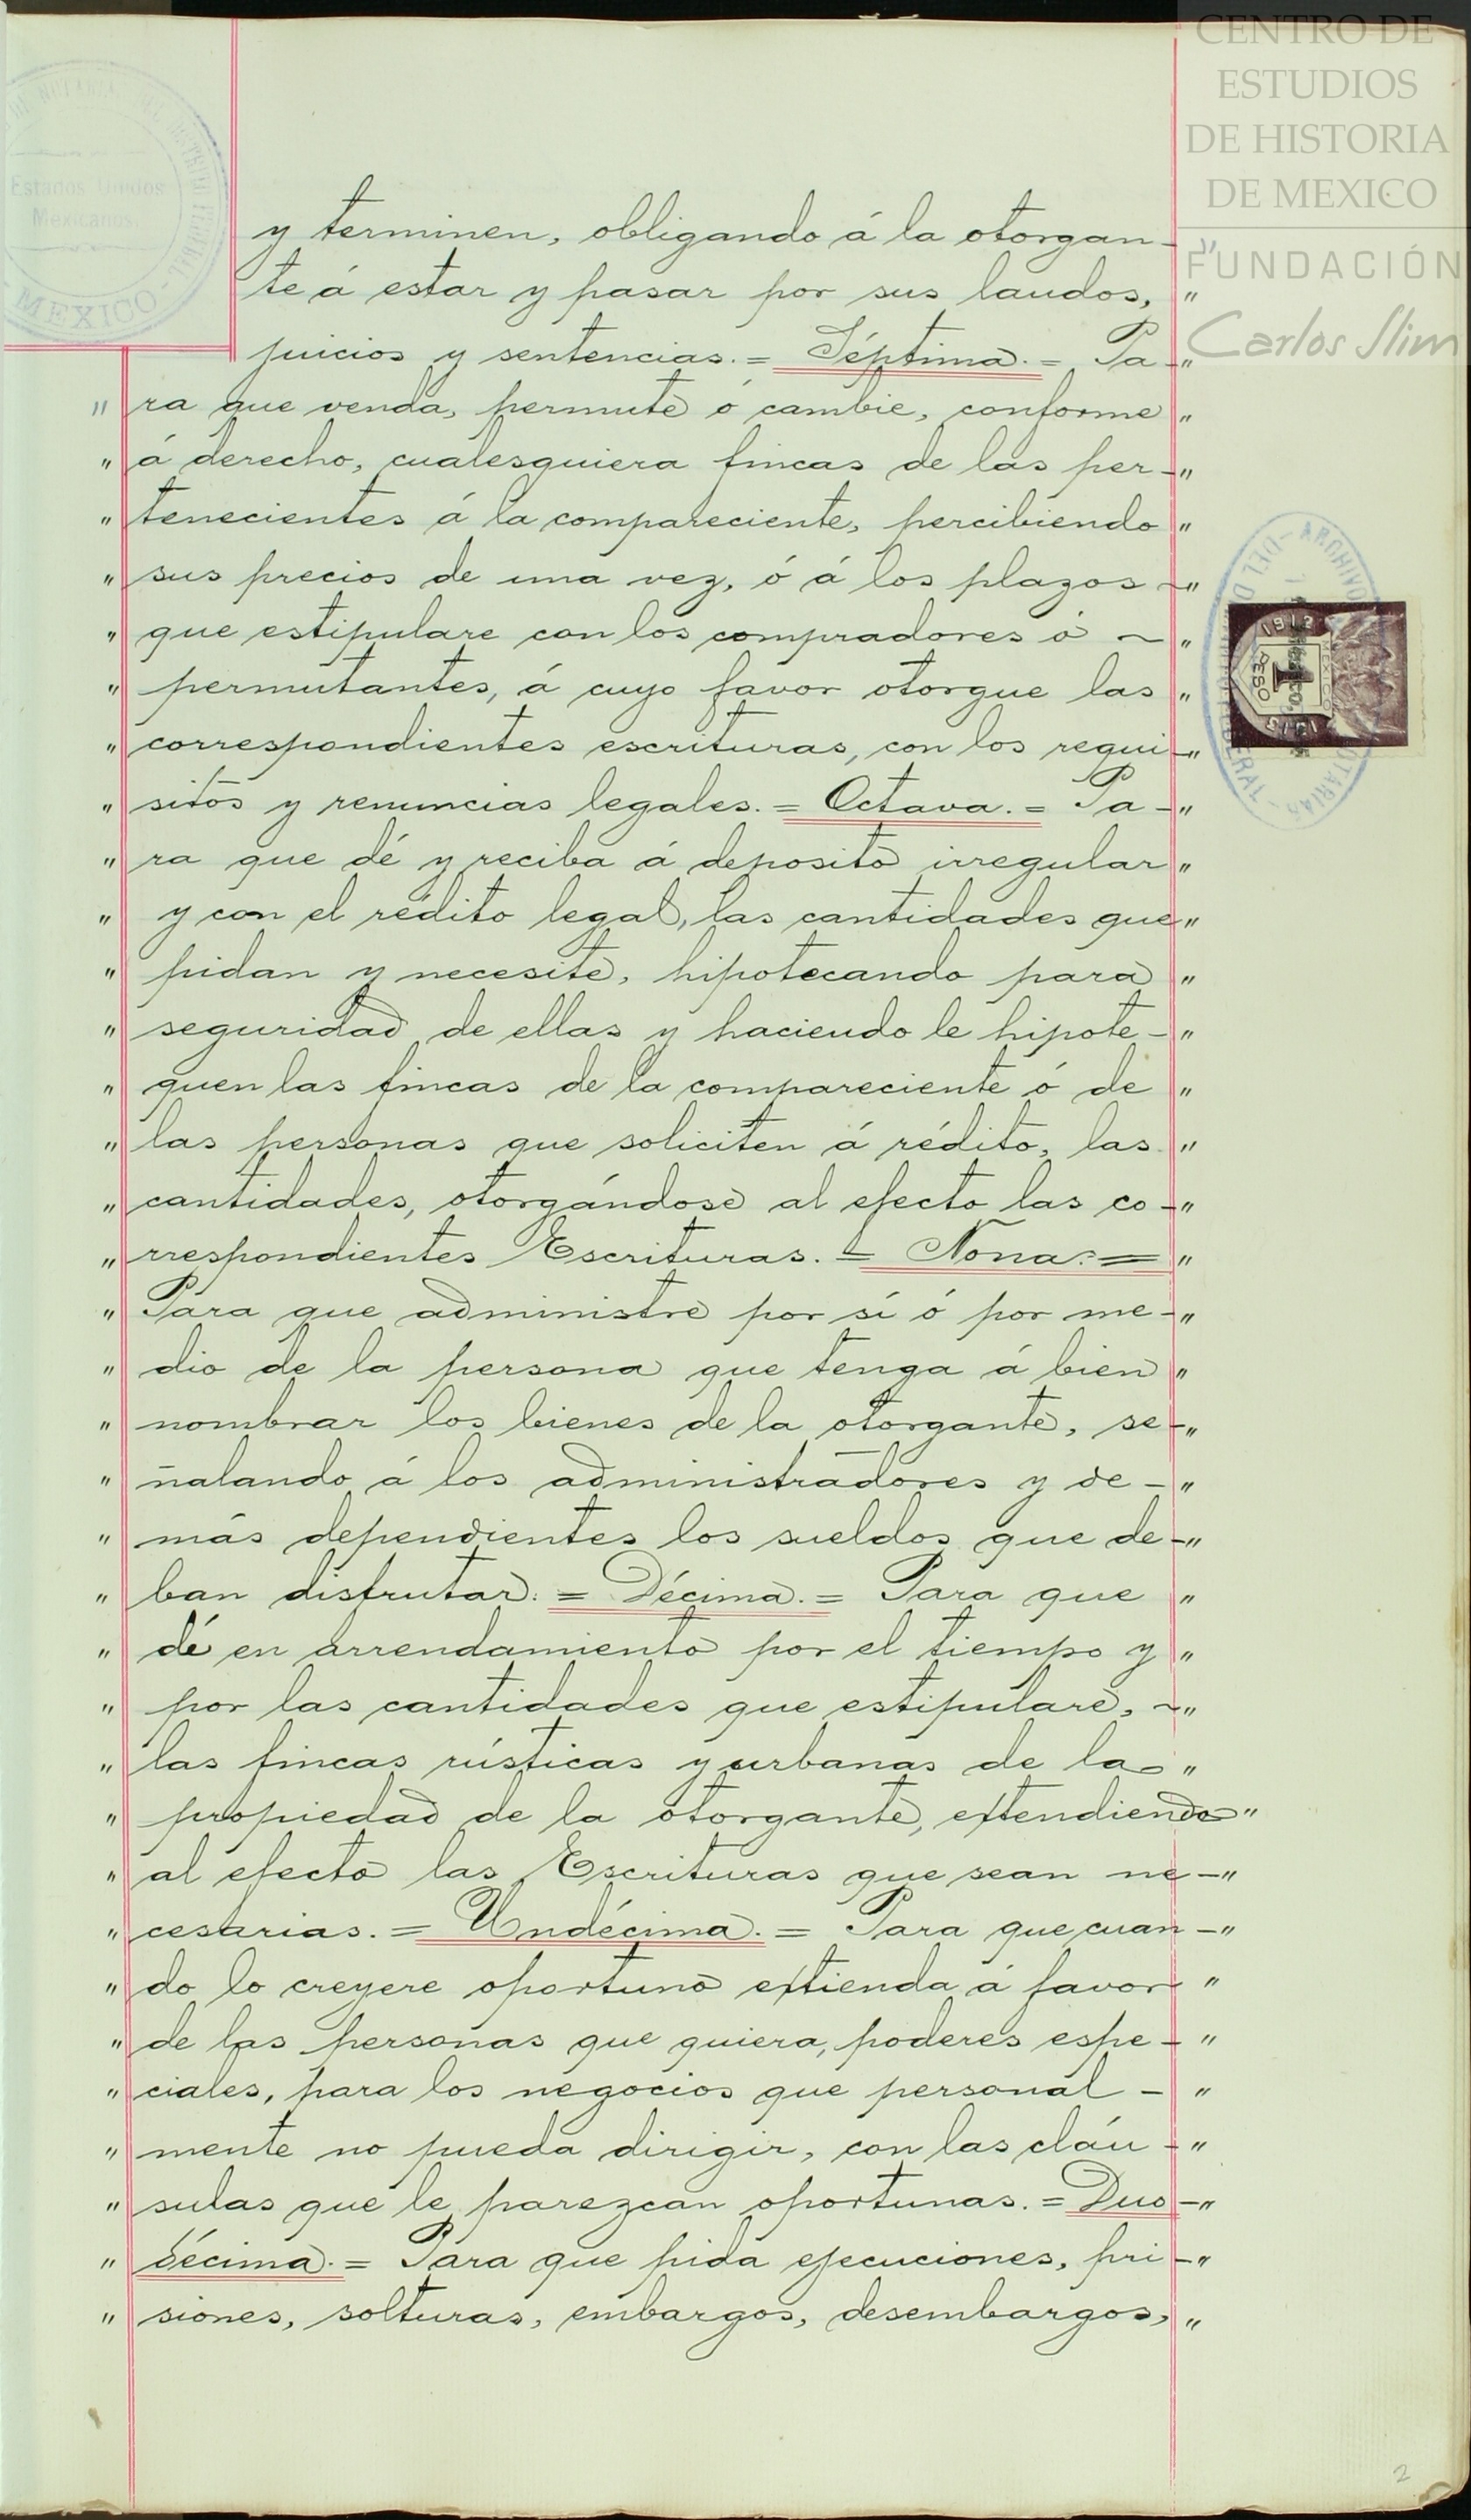 CENTRO DE
ESTUDIOS
DE HISTORIA
DE MEXICO
FUNDACIÓN
Carlos Slim
Estados Unidos
Mexicanos.
MEXICO
y terminen, obligando á la otorgan- "
te á estar y pasar por sus laudos, "
juicios y sentencias. = Séptima. = Pa- "
" ra que venda, permute ó cambie, conforme "
" á derecho, cualesquiera fincas de las per- "
" tenecientes á la compareciente, percibiendo "
" sus precios de una vez, ó á los plazos ~ "
" que estipulare con los compradores ó ~ "
" permutantes, á cuyo favor otorgue las "
" correspondientes escrituras, con los requi- "
" sitos y renuncias legales. = Octava. = Pa- "
" ra que dé y reciba á deposito irregular "
" y con el rédito legal, las cantidades que "
" pidan y necesite, hipotecando para "
" seguridad de ellas y haciendo le hipote- "
" quen las fincas de la compareciente ó de "
" las personas que soliciten á rédito, las "
" cantidades, otorgándose al efecto las co- "
" rrespondientes Escrituras. = Nona. = "
" Para que administre por sí ó por me- "
" dio de la persona que tenga á bien "
" nombrar los bienes de la otorgante, se- "
" ñalando á los administradores y de- "
" más dependientes los sueldos que de- "
" ban disfrutar. = Décima. = Para que "
" dé en arrendamiento por el tiempo y "
" por las cantidades que estipulare, ~ "
" las fincas rústicas y urbanas de la "
" propiedad de la otorgante, extendiendo "
" al efecto las Escrituras que sean ne- "
" cesarias. = Undécima. = Para que cuan- "
" do lo creyere oportuno extienda á favor "
" de las personas que quiera, poderes espe- "
" ciales, para los negocios que personal- "
" mente no pueda dirigir, con las cláu- "
" sulas que le parezcan oportunas. = Duo- "
" décima. = Para que pida ejecuciones, pri- "
" siones, solturas, embargos, desembargos, "
1912
1913
PESO
2